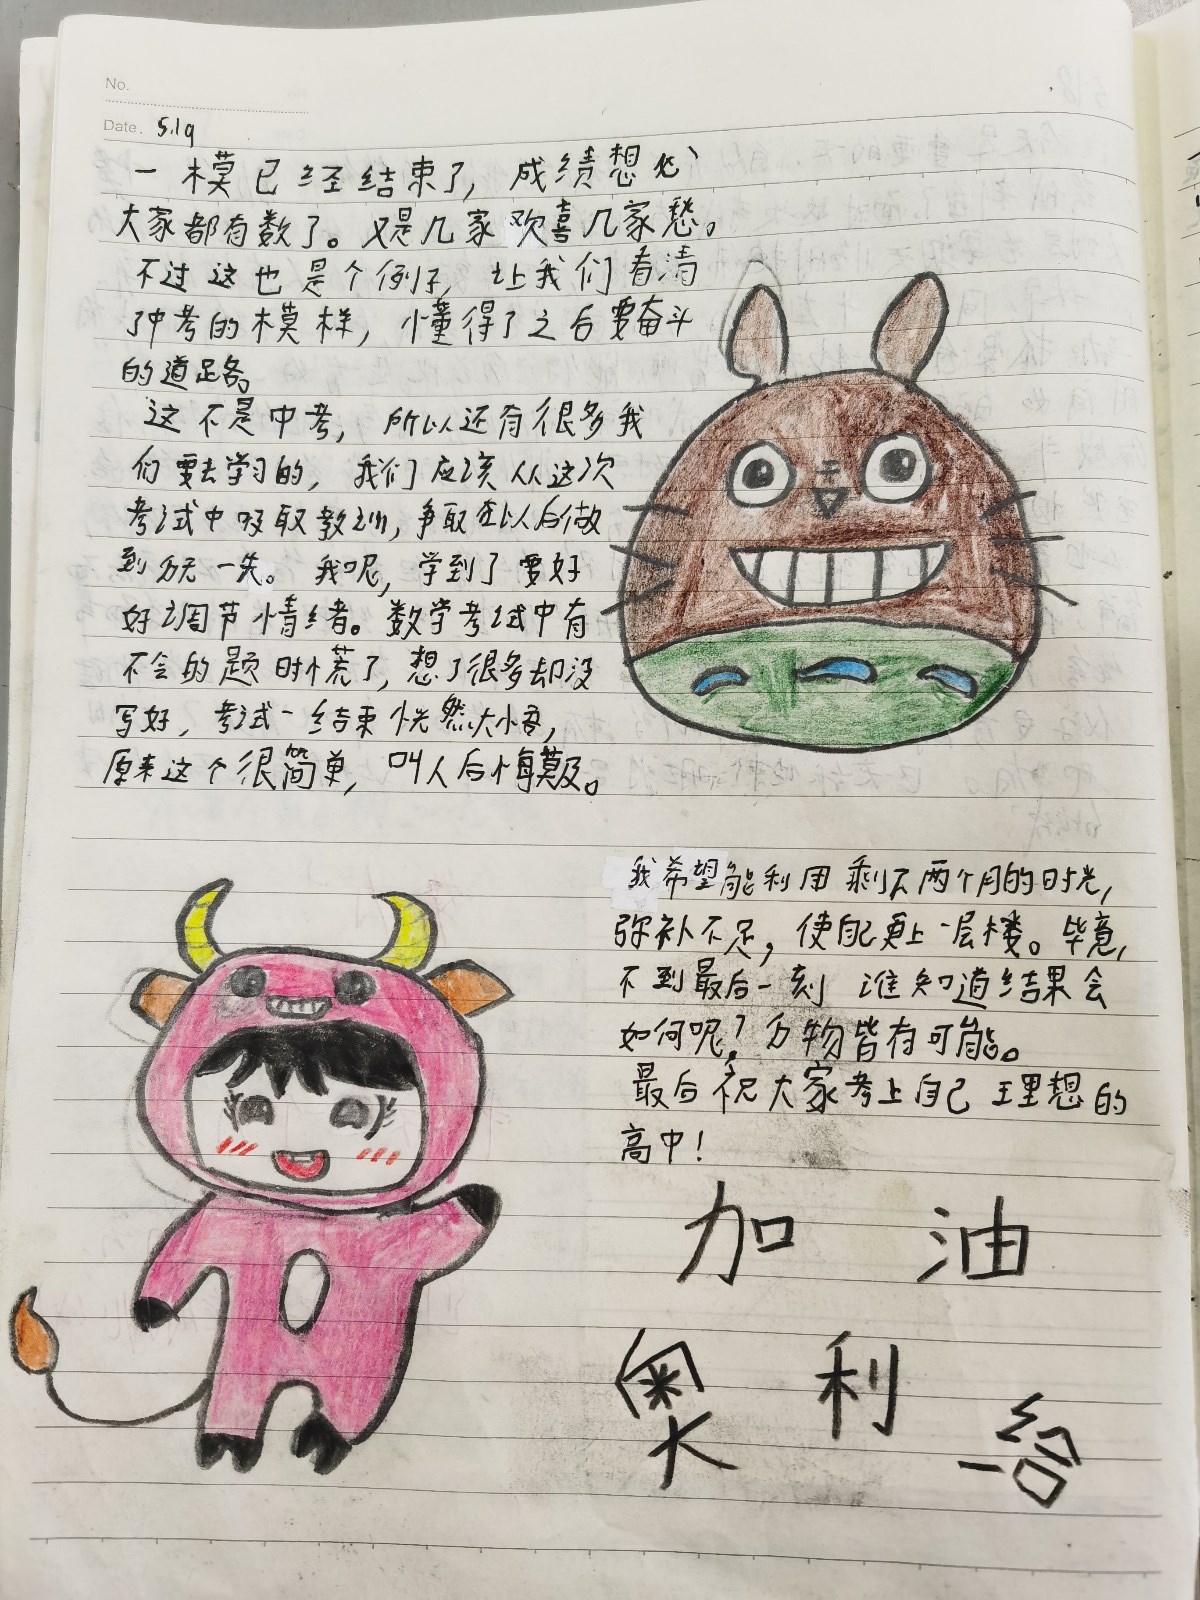 No.
Date. 5.19
一模已经结束了，成绩想必
大家都有数了。又是几家欢喜几家愁。
不过这也是个例子，让我们看清
了中考的模样，懂得了之后要奋斗
的道路。
这不是中考，所以还有很多我
们要去学习的，我们应该从这次
考试中吸取教训，争取在以后做
到万无一失。我呢，学到了要好
好调节情绪。数学考试中有
不会的题时慌了，想了很多却没
写好，考试一结束恍然大小吾，
原来这个很简单，叫人后悔莫及。
我希望能利用剩下两个月的时光，
弥补不足，使自己更上一层楼。毕竟，
不到最后一刻谁知道结果会
如何呢？万物皆有可能。
最后祝大家考上自己理想的
高中！
加油
奥利给